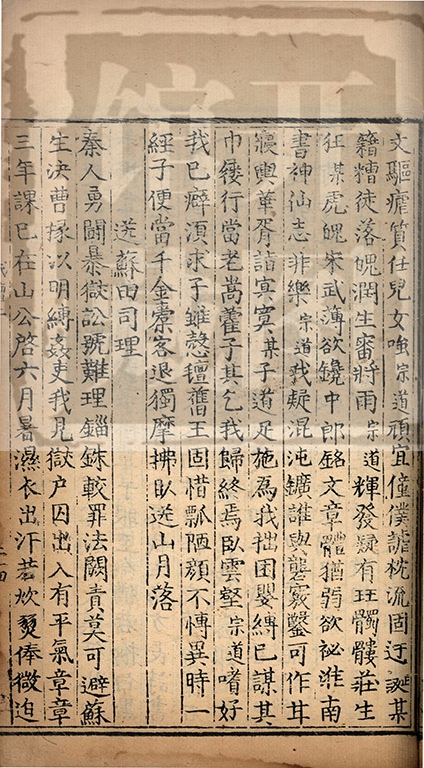 文驅瘧質任兒女嗤宗道頑宜僮僕謔枕流固迂誕某
籍糟徒落魄潤生嗇將雨宗道輝發疑有珏髑髏莊生
狂某虎魄宋武薄欲鐫中郎銘文章體猶弱欲祕淮南
書神仙志非樂宗道我疑混沌鑛誰與礱竅鑿可作耳
寢輿華胥詣寘寞某子道足施爲我拙困嬰縛已謀其
巾屨行當老嵩藿子其乞我歸終焉臥雲壑宗道嗜好
我已癖湏求子雖慤璮舊王固惜瓢陋顏不慱異時一
經子便當千金橐客退獨摩拂臥送山月落
送蘇田司理
秦人勇鬬暴獄訟號難理錙銖較罪法闕責莫可避蘇
生决曹掾以明縛姦吏我見獄户囚出入有平氣章章
三年課已在山公啓六月暑濕衣出汗若炊㸑俸微迫